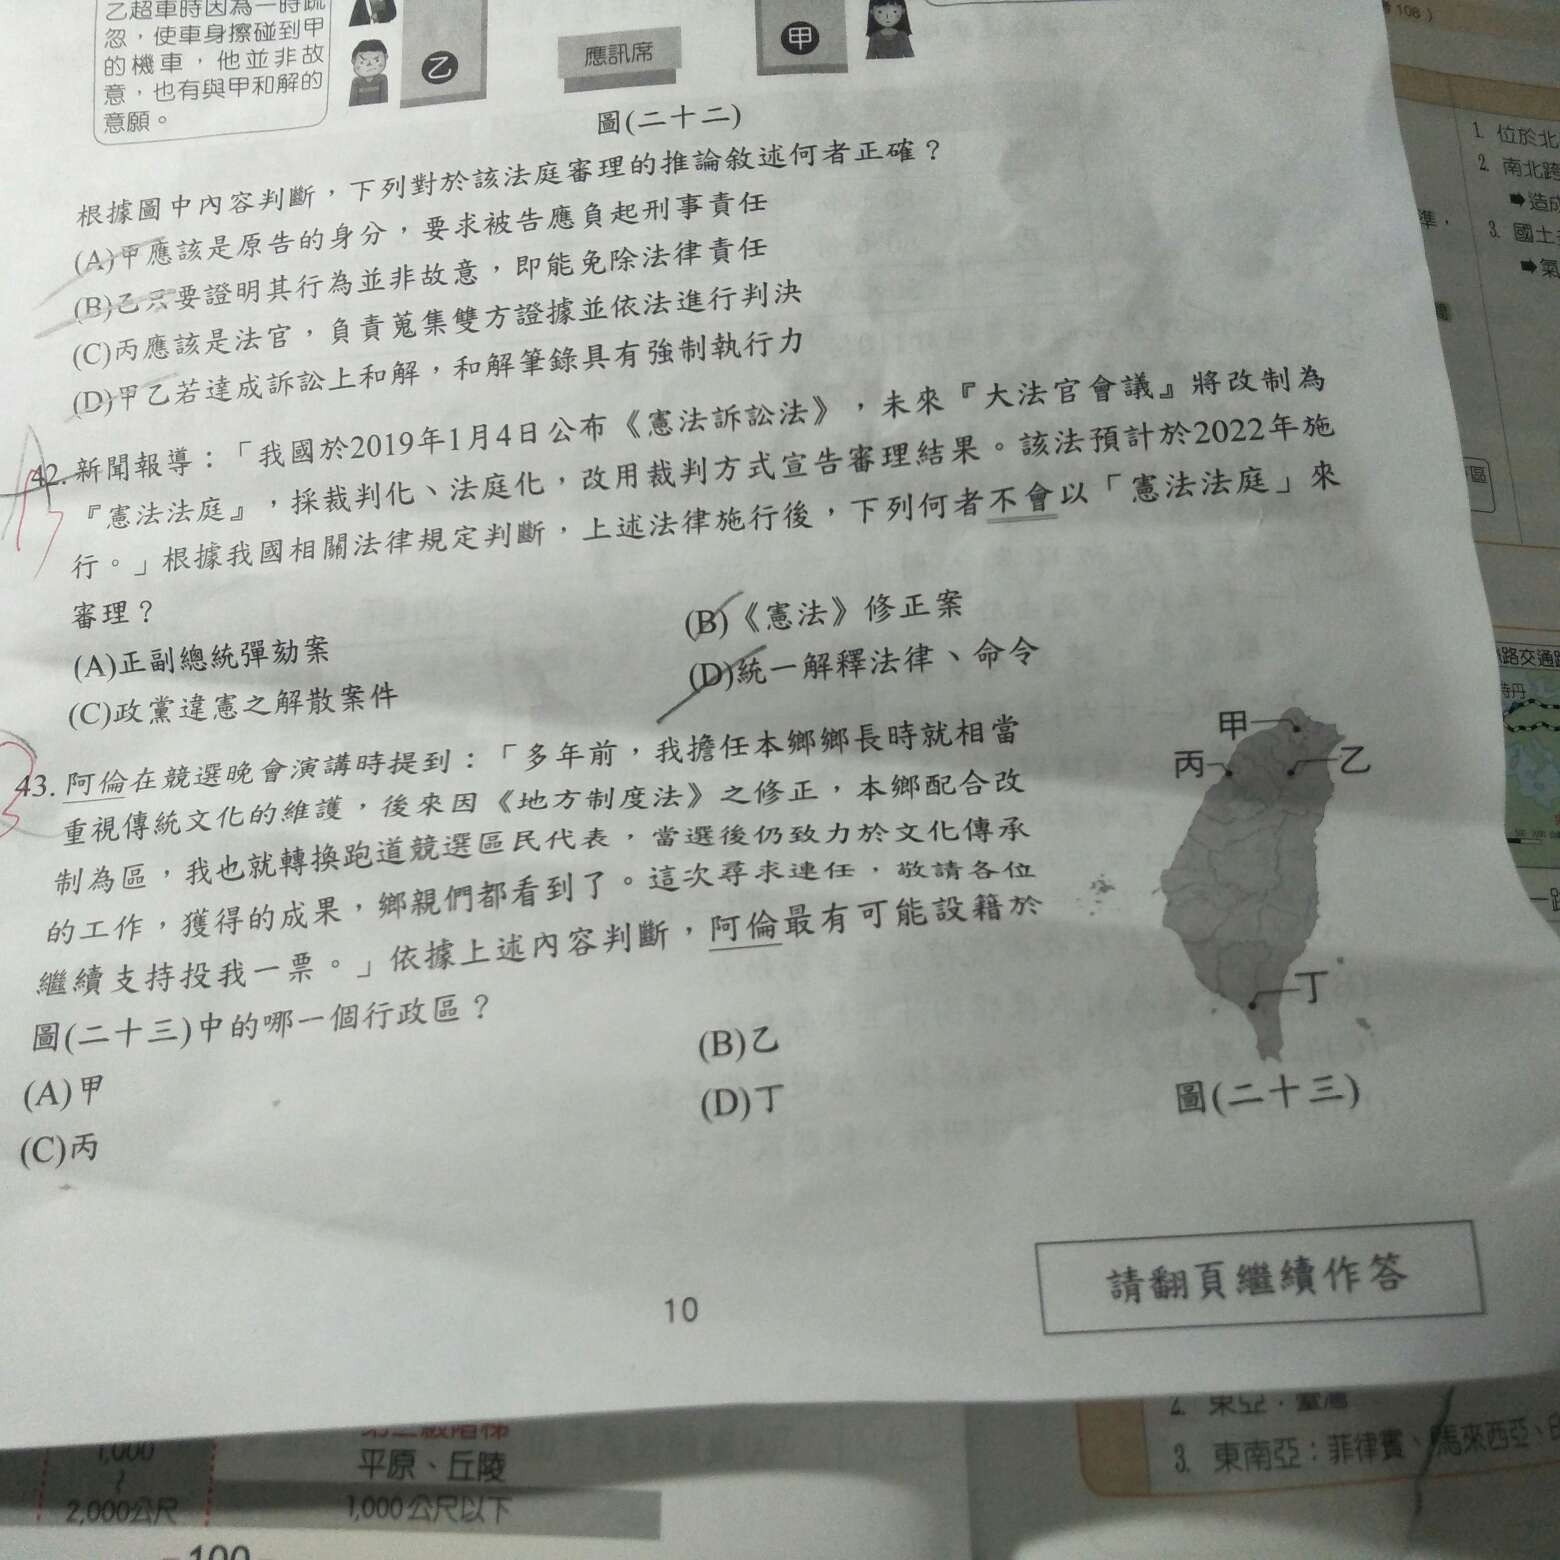 乙超車時因為一時疏
忽，使車身擦碰到甲
的機車，他並非故
意，也有與甲和解的
意願。
乙
應訊席
甲
圖(二十二)
根據圖中內容判斷，下列對於該法庭審理的推論敘述何者正確？
(A)甲應該是原告的身分，要求被告應負起刑事責任
(B)乙只要證明其行為並非故意，即能免除法律責任
(C)丙應該是法官，負責蒐集雙方證據並依法進行判決
(D)甲乙若達成訴訟上和解，和解筆錄具有強制執行力
42. 新聞報導：「我國於2019年1月4日公布《憲法訴訟法》，未來『大法官會議』將改制為
『憲法法庭』，採裁判化、法庭化，改用裁判方式宣告審理結果。該法預計於2022年施
行。」根據我國相關法律規定判斷，上述法律施行後，下列何者不會以「憲法法庭」來
審理？
(A)正副總統彈劾案
(B)《憲法》修正案
(C)政黨違憲之解散案件
(D)統一解釋法律、命令
43. 阿倫在競選晚會演講時提到：「多年前，我擔任本鄉鄉長時就相當
重視傳統文化的維護，後來因《地方制度法》之修正，本鄉配合改
制為區，我也就轉換跑道競選區民代表，當選後仍致力於文化傳承
的工作，獲得的成果，鄉親們都看到了。這次尋求連任，敬請各位
繼續支持投我一票。」依據上述內容判斷，阿倫最有可能設籍於
圖(二十三)中的哪一個行政區？
(A)甲
(B)乙
(C)丙
(D)丁
甲
丙
乙
丁
圖(二十三)
請翻頁繼續作答
10
108)
1. 位於北
2. 南北跨
➡造成
準，
3. 國土
➡氣
區
路交通
1,000
2,000公尺
平原、丘陵
1,000公尺以下
100
2. 東亞：臺灣
3. 東南亞：菲律賓、馬來西亞、